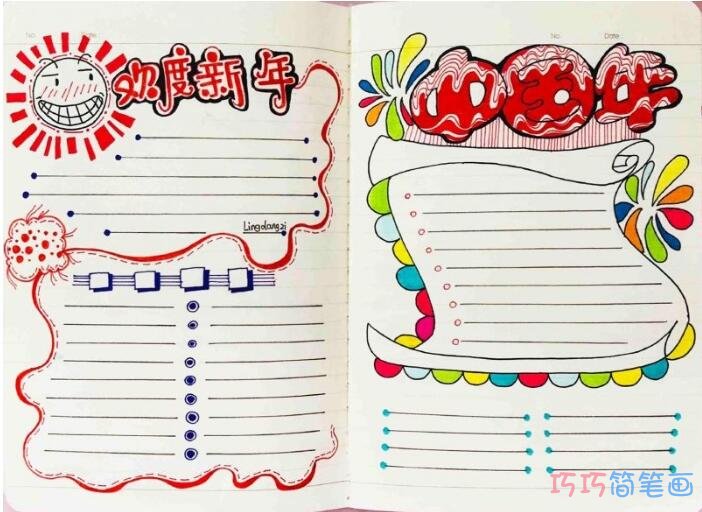 No: Date:
欢度新年
Lingdangzi
No: Date:
中国年
巧巧简笔画